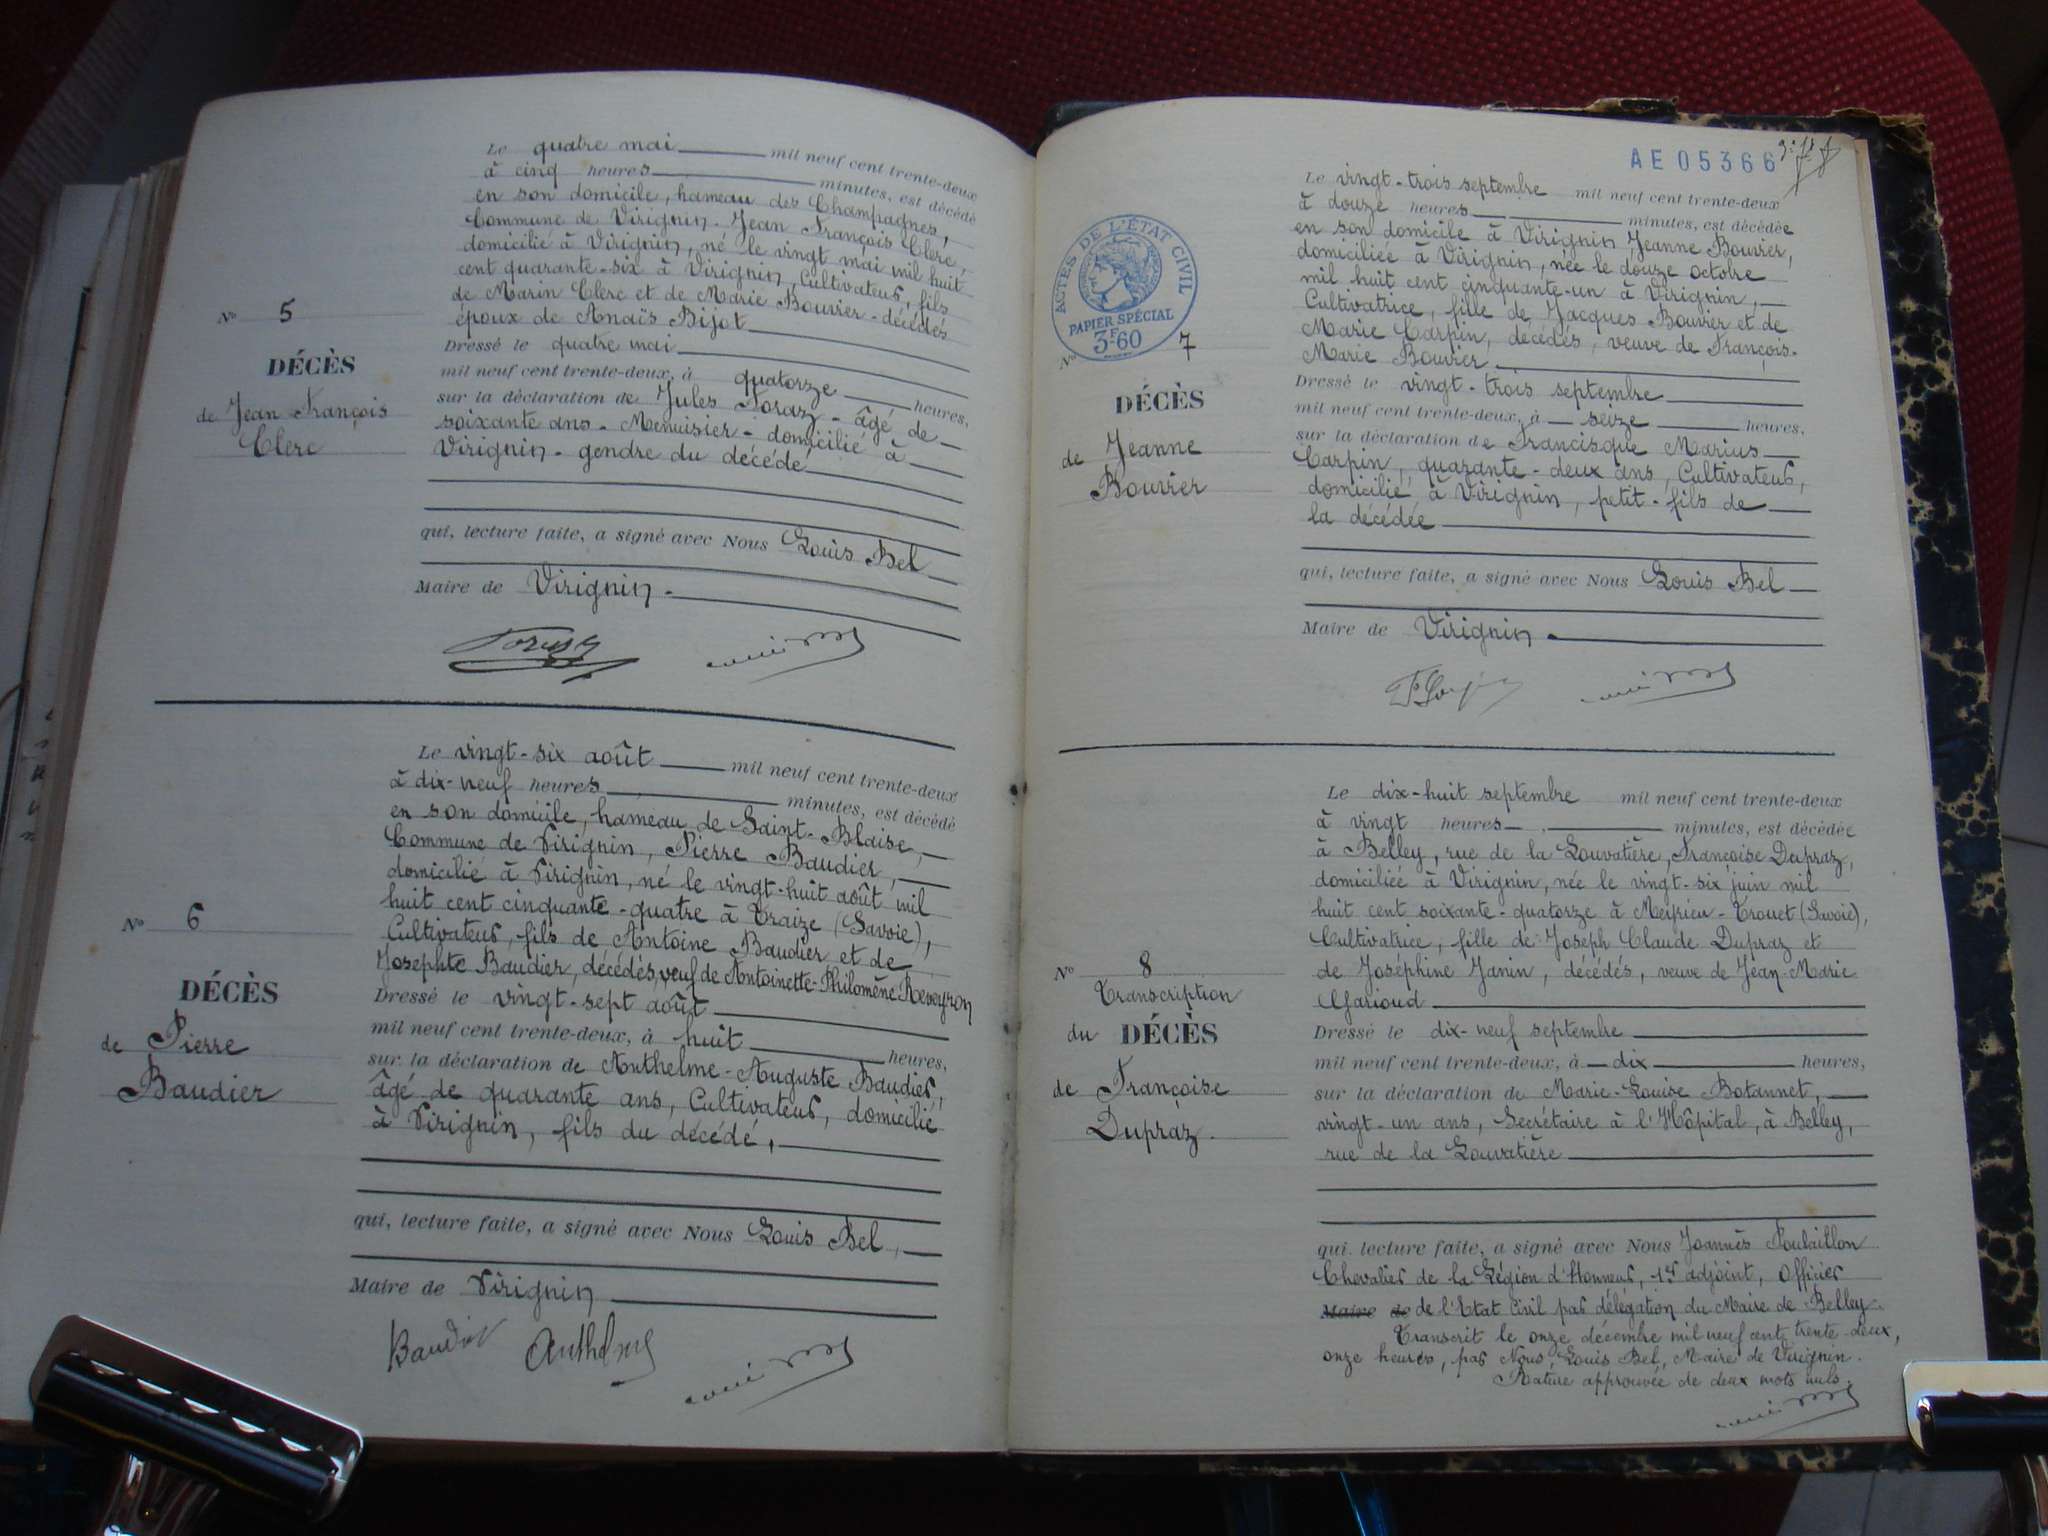 Le quatre mai mil neuf cent trente-deux
à cinq heures minutes, est décédé
en son domicile, hameau des Champagnes,
Commune de Virignin. Jean François Clerc,
domicilié à Virignin, né le vingt mai mil huit
cent quarante-six à Virignin, Cultivateur, fils
de Marin Clerc et de Marie Bouvier - décédés
époux de Anaïs Bijot
Dressé le quatre mai
mil neuf cent trente-deux, à quatorze heures,
sur la déclaration de Jules Foraz - âgé de
soixante ans - Menuisier - domicilié à
Virignin - gendre du décédé
qui, lecture faite, a signé avec Nous Louis Bel
Maire de Virignin.
N° 5
DÉCÈS
de Jean François
Clerc
Le vingt-six août mil neuf cent trente-deux
à dix-neuf heures minutes, est décédé
en son domicile, hameau de Saint-Blaise,
Commune de Virignin, Pierre Baudier,
domicilié à Virignin, né le vingt-huit août mil
huit cent cinquante-quatre à Traize (Savoie),
Cultivateur, fils de Antoine Baudier et de
Josephte Baudier, décédés, veuf de Antoinette-Philomène Reveyron
Dressé le vingt-sept août
mil neuf cent trente-deux, à huit heures,
sur la déclaration de Anthelme-Auguste Baudier,
âgé de quarante ans, Cultivateur, domicilié
à Virignin, fils du décédé,
qui, lecture faite, a signé avec Nous Louis Bel,
Maire de Virignin
Baudier Anthelme
N° 6
DÉCÈS
de Pierre
Baudier
AE 05366
ACTES DE L'ÉTAT CIVIL
PAPIER SPÉCIAL
3F60
Le vingt-trois septembre mil neuf cent trente-deux
à douze heures minutes, est décédée
en son domicile à Virignin Jeanne Bouvier,
domiciliée à Virignin, née le douze octobre
mil huit cent cinquante-un à Virignin,
Cultivatrice, fille de Jacques Bouvier et de
Marie Carpin, décédés, veuve de François-
Marie Bouvier
Dressé le vingt-trois septembre
mil neuf cent trente-deux, à seize heures,
sur la déclaration de Francisque Marius
Carpin, quarante-deux ans, Cultivateur,
domicilié à Virignin, petit-fils de
la décédée
qui, lecture faite, a signé avec Nous Louis Bel
Maire de Virignin.
N° 7
DÉCÈS
de Jeanne
Bouvier
Le dix-huit septembre mil neuf cent trente-deux
à vingt heures minutes, est décédée
à Belley, rue de la Louvatière, Françoise Dupraz,
domiciliée à Virignin, née le vingt-six juin mil
huit cent soixante-quatorze à Meyrieu-Trouet (Savoie),
Cultivatrice, fille de Joseph Claude Dupraz et
de Joséphine Janin, décédés, veuve de Jean-Marie
Garioud
Dressé le dix-neuf septembre
mil neuf cent trente-deux, à dix heures,
sur la déclaration de Marie-Louise Botannet,
vingt-un ans, Secrétaire à l'Hôpital, à Belley,
rue de la Louvatière
qui, lecture faite, a signé avec Nous Joannès Poulaillon
Chevalier de la Légion d'Honneur, 1er adjoint, Officier
Maire de de l'Etat Civil par délégation du Maire de Belley.
Transcrit le onze décembre mil neuf cent trente-deux,
onze heures, par Nous, Louis Bel, Maire de Virignin.
Rature approuvée de deux mots nuls.
N° 8
Transcription
du DÉCÈS
de Françoise
Dupraz.